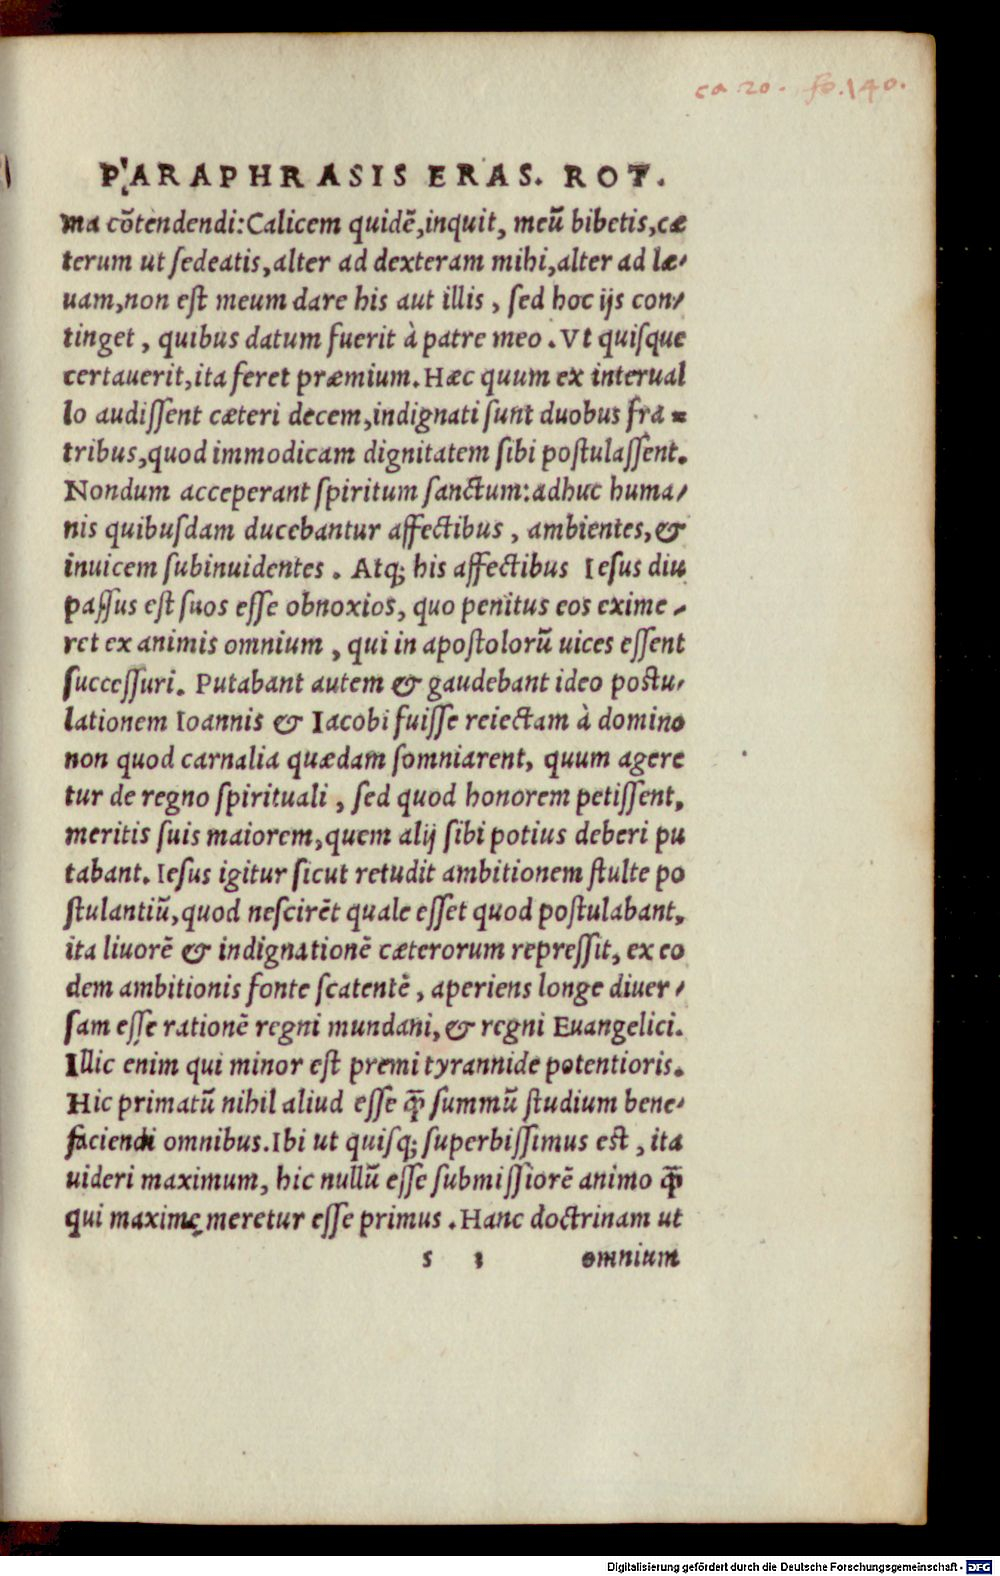 ca 20. fo. 140.
PARAPHRASIS ERAS. ROT.
ma cõtendendi: Calicem quidẽ, inquit, meũ bibetis, cæ
terum ut ſedeatis, alter ad dexteram mihi, alter ad læ⸗
uam, non eſt meum dare his aut illis, ſed hoc ijs con⸗
tinget, quibus datum fuerit à patre meo. Vt quiſque
certauerit, ita feret præmium. Hæc quum ex interual
lo audiſſent cæteri decem, indignati ſunt duobus fra⸗
tribus, quod immodicam dignitatem ſibi poſtulaſſent.
Nondum acceperant ſpiritum ſanctum: adhuc huma⸗
nis quibuſdam ducebantur affectibus, ambientes, &
inuicem ſubinuidentes. Atq; his affectibus Ieſus diu
paſſus eſt ſuos eſſe obnoxios, quo penitus eos exime⸗
ret ex animis omnium, qui in apoſtolorũ uices eſſent
ſucceſſuri. Putabant autem & gaudebant ideo poſtu⸗
lationem Ioannis & Iacobi fuiſſe reiectam à domino
non quod carnalia quædam ſomniarent, quum agere
tur de regno ſpirituali, ſed quod honorem petiſſent,
meritis ſuis maiorem, quem alij ſibi potius deberi pu
tabant. Ieſus igitur ſicut retudit ambitionem ſtulte po
ſtulantiũ, quod neſcirẽt quale eſſet quod poſtulabant,
ita liuorẽ & indignationẽ cæterorum repreſſit, ex eo
dem ambitionis fonte ſcatentẽ, aperiens longe diuer⸗
ſam eſſe rationẽ regni mundani, & regni Euangelici.
Illic enim qui minor eſt premi tyrannide potentioris.
Hic primatũ nihil aliud eſſe q̃ ſummũ ſtudium bene⸗
faciendi omnibus. Ibi ut quiſq; ſuperbiſſimus eſt, ita
uideri maximum, hic nullũ eſſe ſubmiſſiorẽ animo q̃
qui maxime meretur eſſe primus. Hanc doctrinam ut
s 3 omnium
Digitalisierung gefördert durch die Deutsche Forschungsgemeinschaft - DFG